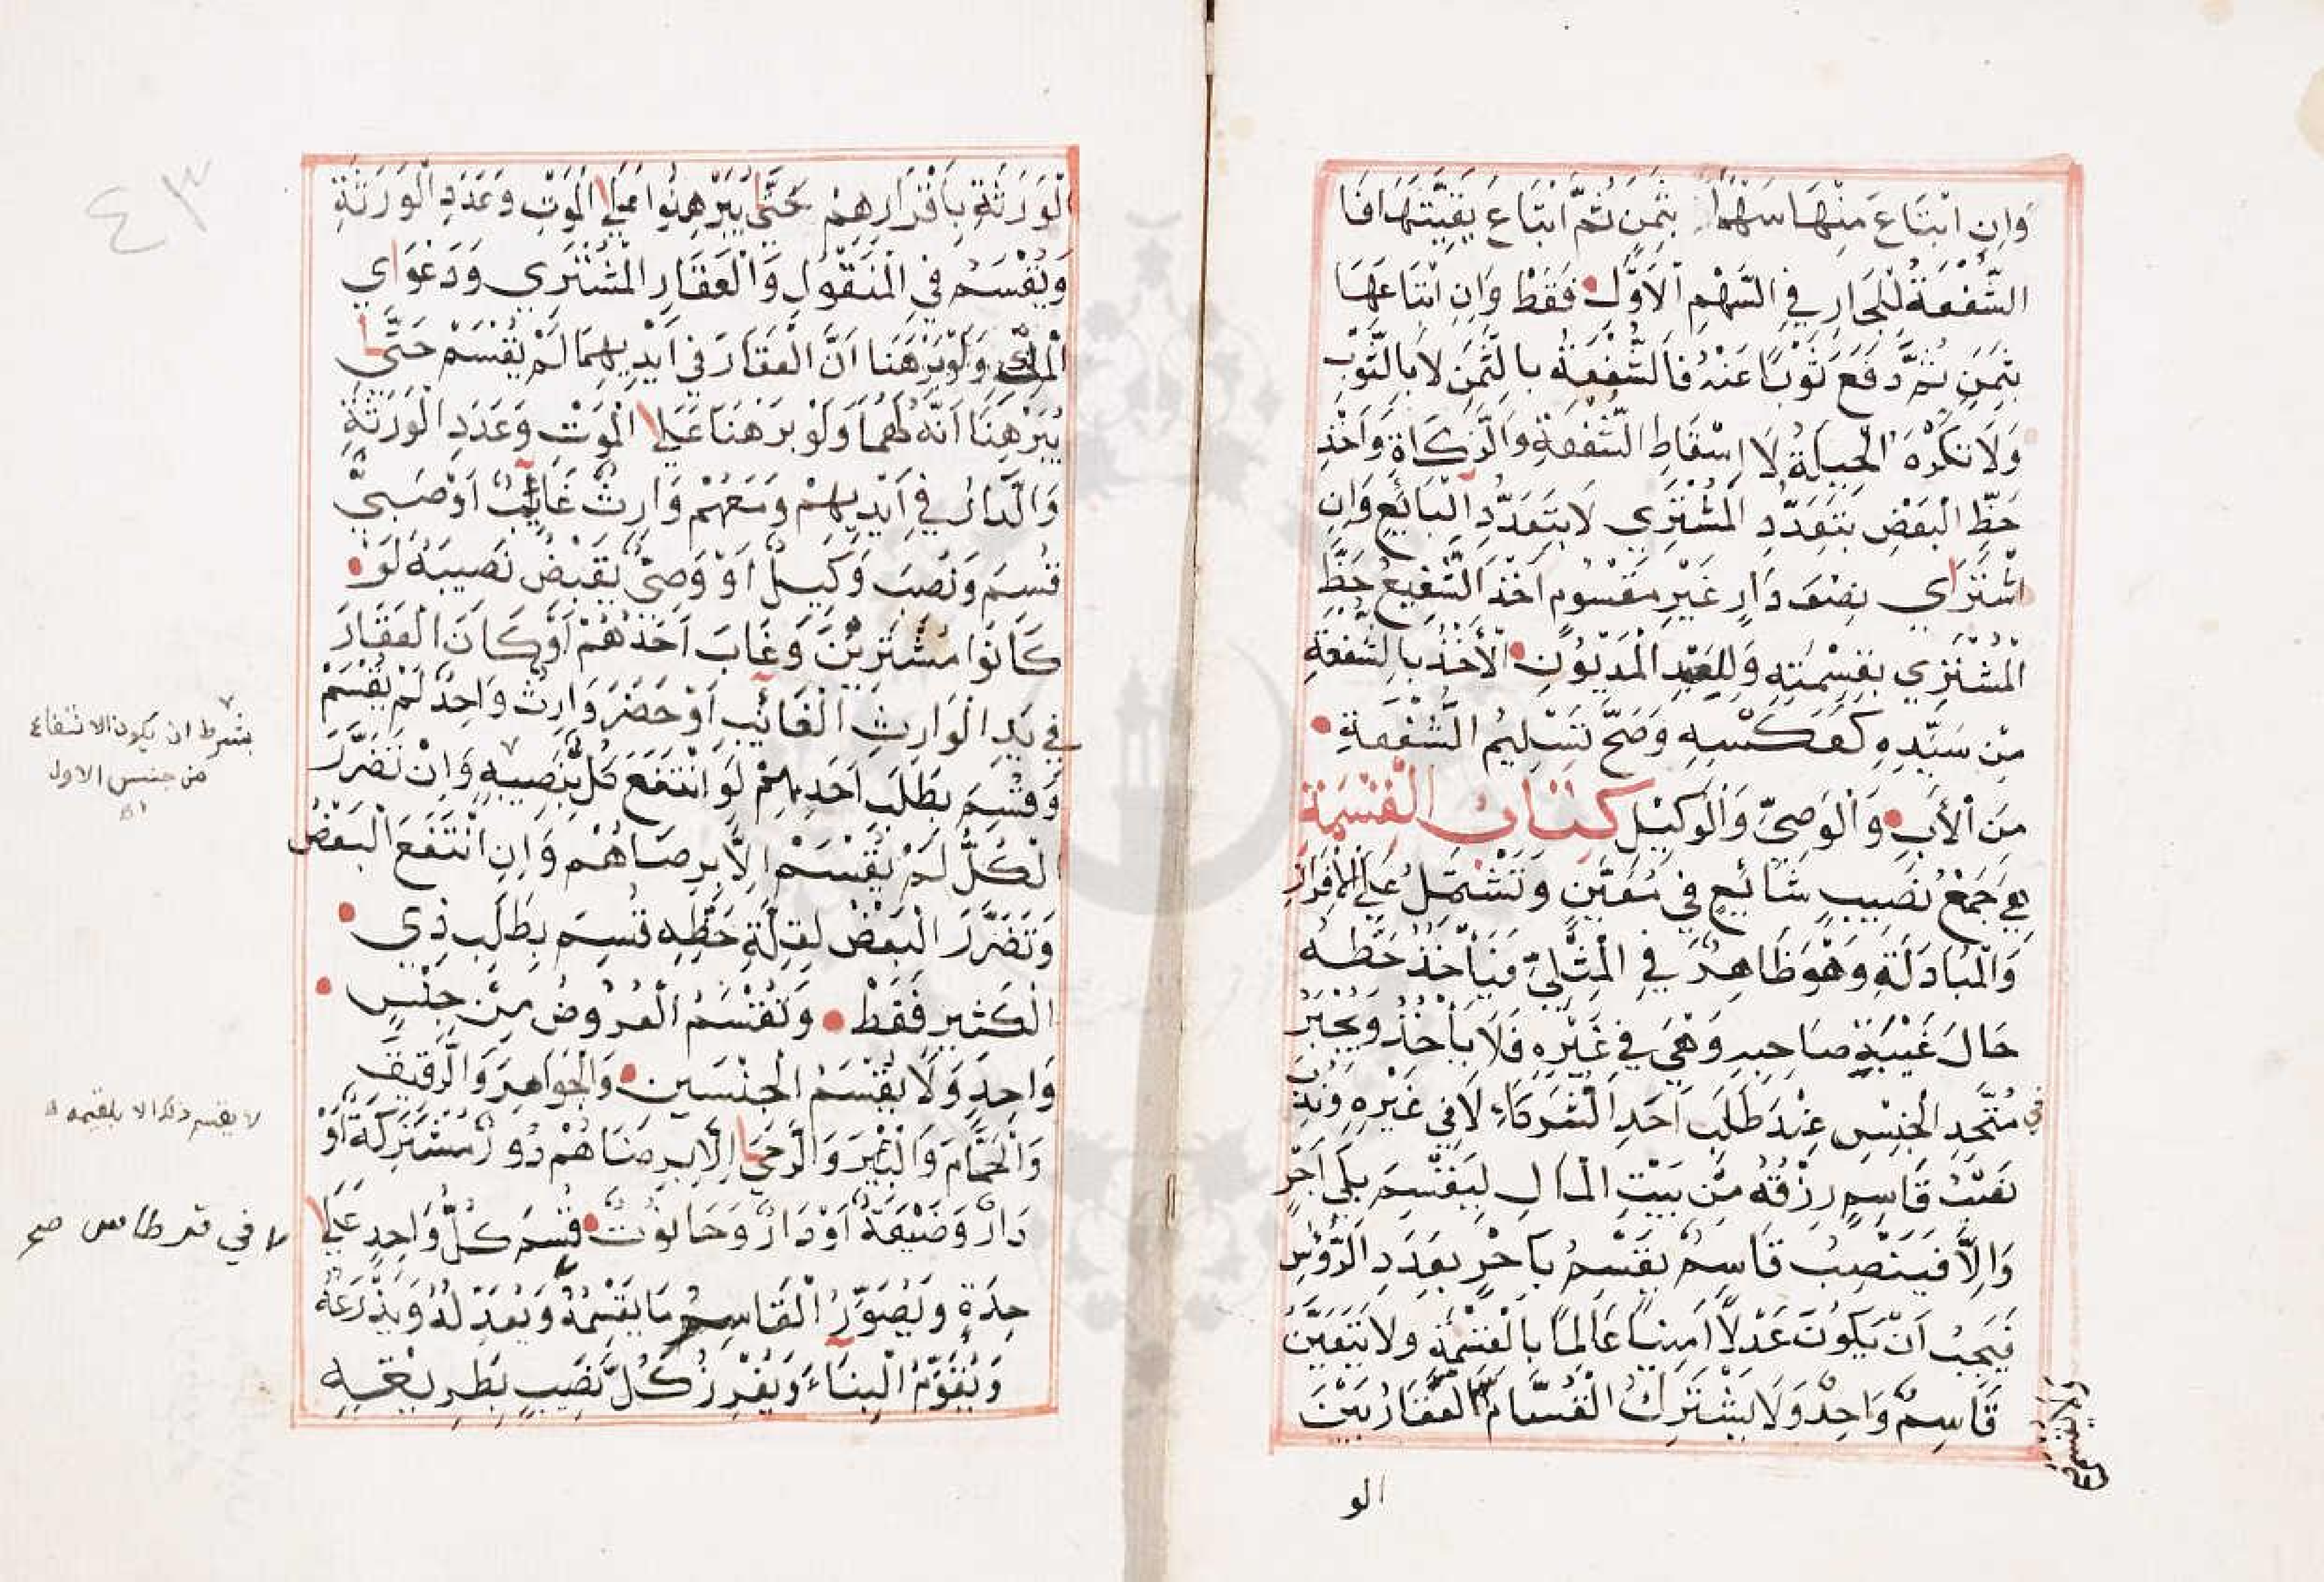 وَاِنِ ابْتَاعَ مِنْهَا سَهْمًا بِثَمَنٍ ثُمَّ ابْتَاعَ بَقِيَّتَهَا فَا
الشُّفْعَةُ لِلْجَارِ فِي السَّهْمِ الْاَوَّلِ فَقَطْ وَاِنِ ابْتَاعَهَا
بِثَمَنٍ ثُمَّ دَفَعَ ثَوْبًا عَنْهُ فَالشُّفْعَةُ بِالثَّمَنِ لَا بِالثَّوْبِ
وَلَا تُكْرَهُ الْحِيلَةُ لَا اِسْقَاطِ الشُّفْعَةِ وَالزَّكَاةِ وَاَخْذِ
حَظِّ الْبَعْضِ بِتَعَدُّدِ الْمُشْتَرِي لَا بِتَعَدُّدِ الْبَائِعِ وَاِنِ
اشْتَرَاي نِصْفَ دَارٍ غَيْرِ مَقْسُومٍ اَخَذَ الشَّفِيعُ حَظَّ
الْمُشْتَرِي بِقِسْمَتِهِ وَلِلعَبْدِ الْمَدْيُونِ الْأَخْذُ بِالشُّفْعَةِ
مِنْ سَيِّدِهِ كَعَكْسِهِ وَصَحَّ تَسْلِيمُ الشُّفْعَةِ
مِنَ الْأَبِ وَالْوَصِيِّ وَالْوَكِيْلِ كتاب القسمة
هِيَ جَمْعُ نَصِيبٍ شَائِعٍ فِي مُعَيَّنٍ وَتَشْتَمِلُ عَلَى الْاِفْرَازِ
وَالْمُبَادَلَةِ وَهُوَ ظَاهِرٌ فِي الْمِثْلِيِّ فَيَأْخُذُ حَظَّهُ
حَالَ غَيْبَةِ صَاحِبِهِ وَهْيَ فِي غَيْرِهِ فَلَا يَأْخُذُ وَيُجْبَرُ
في مُتَّحِدِ الْجِنْسِ عِنْدَ طَلَبِ اَحَدِ الشُّرَكَاءِ لَا فِي غَيْرِهِ وَنُدِبَ
نَصْبُ قَاسِمٍ رِزْقُهُ مِنْ بَيْتِ الْمَالِ لِيَقْسِمَ بِلَى اَجْرٍ
وَاِلَّا فَيُنَصِّبُ قَاسِمٌ يَقْسِمُ بِاَجْرٍ بِعَدَدِ الرُّؤُسِ
فَيَجِبُ اَنْ يَكُونَ عَدْلًا اَمِينًا عَالِمًا بِالْقِسْمَةِ وَلَا يَتَعَيَّنُ
قَاسِمٌ وَاحِدٌ وَلَا يَشْتَرِكُ الْقُسَّامُ الْعَقَارُ بَيْنَ
وَلَا يُقْسَمُ
الو
الْوَرَثَةِ بِاَقْرَارِهِمْ حَتَّى يُبَرْهِنُوا عَلَى الْمَوْتِ وَعَدَدِ الْوَرَثَةِ
وَيُقْسَمُ فِي الْمَنْقُولِ وَالْعَقَارِ الْمُشْتَرِي وَدَعْوَاي
الْمِلْكِ وَلَوْ بَرْهَنَا اَنَّ الْعَقَارَ فِي اَيْدِيهِمَا لَمْ يُقْسَمْ حَتَّى
يُبَرْهِنَا اَنَّهُ لَهُمَا وَلَوْ بَرْهَنَا عَلَى الْمَوْتِ وَعَدَدِ الْوَرَثَةِ
وَالدَّارُ فِي اَيْدِيهِمْ وَمَعَهُمْ وَارِثٌ غَايِبٌ اَوْ صَبِيٌّ
قُسِمَ وَنُصِبَ وَكِيلٌ اَوْ وَصِيٌّ يَقْبِضُ نَصِيبَهُ لَوْ
كَانُوا مُشْتَرِينَ وَغَابَ اَحَدُهُمْ اَوْ كَانَ الْعَقَارَ
فِي يَدِ الْوَارِثِ الْغَائِبِ اَوْ حَضَرَ وَارِثٌ وَاحِدٌ لَمْ يُقْسَمْ
وَقُسِمَ بِطَلَبِ اَحَدِهِمْ لَوِ انْتَفَعَ كُلٌّ بِنَصِيبِهِ وَاِنْ تَضَرَّرَ
الْكُلُّ لَمْ يُقْسَمْ اِلَّا بِرِضَاهُمْ وَاِنِ انْتَفَعَ الْبَعْضُ
وَتَضَرَّرَ الْبَعْضُ لِقِلَّةِ حَظِّهِ قُسِمَ بِطَلَبِ ذِي
الْكَثِيرِ فَقَطْ وَتُقْسَمُ الْعُرُوضُ مِنْ جِنْسٍ
وَاحِدٍ وَلَا يُقْسَمُ الْجِنْسَينِ وَالْجَوَاهِرَ وَالرَّقِيقَ
وَالْحَمَّامَ وَالْبِئْرَ وَالرَّحَى اِلَّا بِرِضَاهُمْ دُورٌ مُشْتَرِكَةٌ اَوْ
دَارٌ وَضَيْعَةٌ اَوْ دَارٌ وَحَانُوتٌ قُسِمَ كُلٌّ وَاحِدٍ عَلَى
حِدَةٍ وَيُصَوِّرُ الْقَاسِمُ مَا يَقْسِمُهُ وَيُعَدِّلُهُ وَيَذْرَعُهُ
وَيُقَوِّمُ الْبِنَاءَ وَيُفْرِزُ كُلَّ نَصِيبٍ بِطَرِيقِهِ
٤٣
بشرط ان يكون الانتفاع
من جنس الاول
لا يقسم ذلك الا بالقيمة
في قرطاس صح